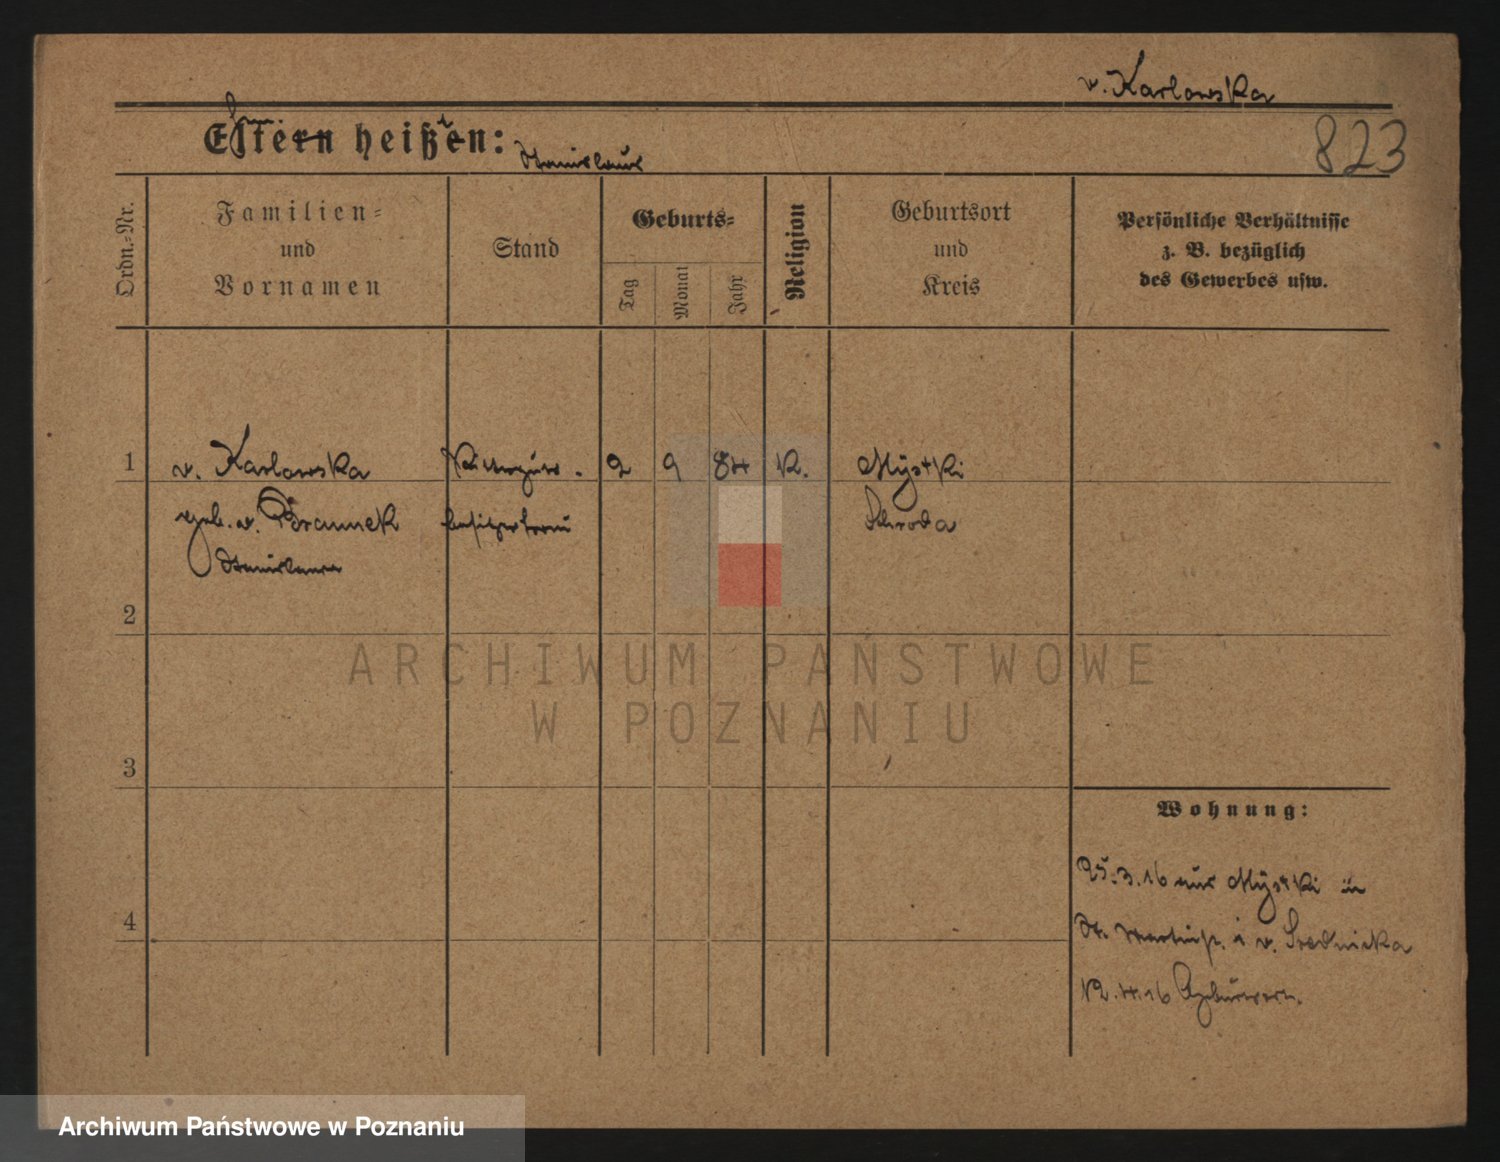 v. Karlowska
Eltern heißen:
Stanislaus
823
Ordn.-Nr.
Familien-
und
Vornamen
Stand
Geburts-
Tag
Monat
Jahr
Religion
Geburtsort
und
Kreis
Persönliche Verhältnisse
z. B. bezüglich
des Gewerbes usw.
1
v. Karlowska
geb. v.
Stanislawa
Rittergüts-
besitzerfrau
2
9
84
K.
Mystki
Schroda
2
3
4
Wohnung:
25.3.16 aus Mystki in
St. v. Srednicka
12.4.16
ARCHIWUM PAŃSTWOWE
W POZNANIU
Archiwum Państwowe w Poznaniu